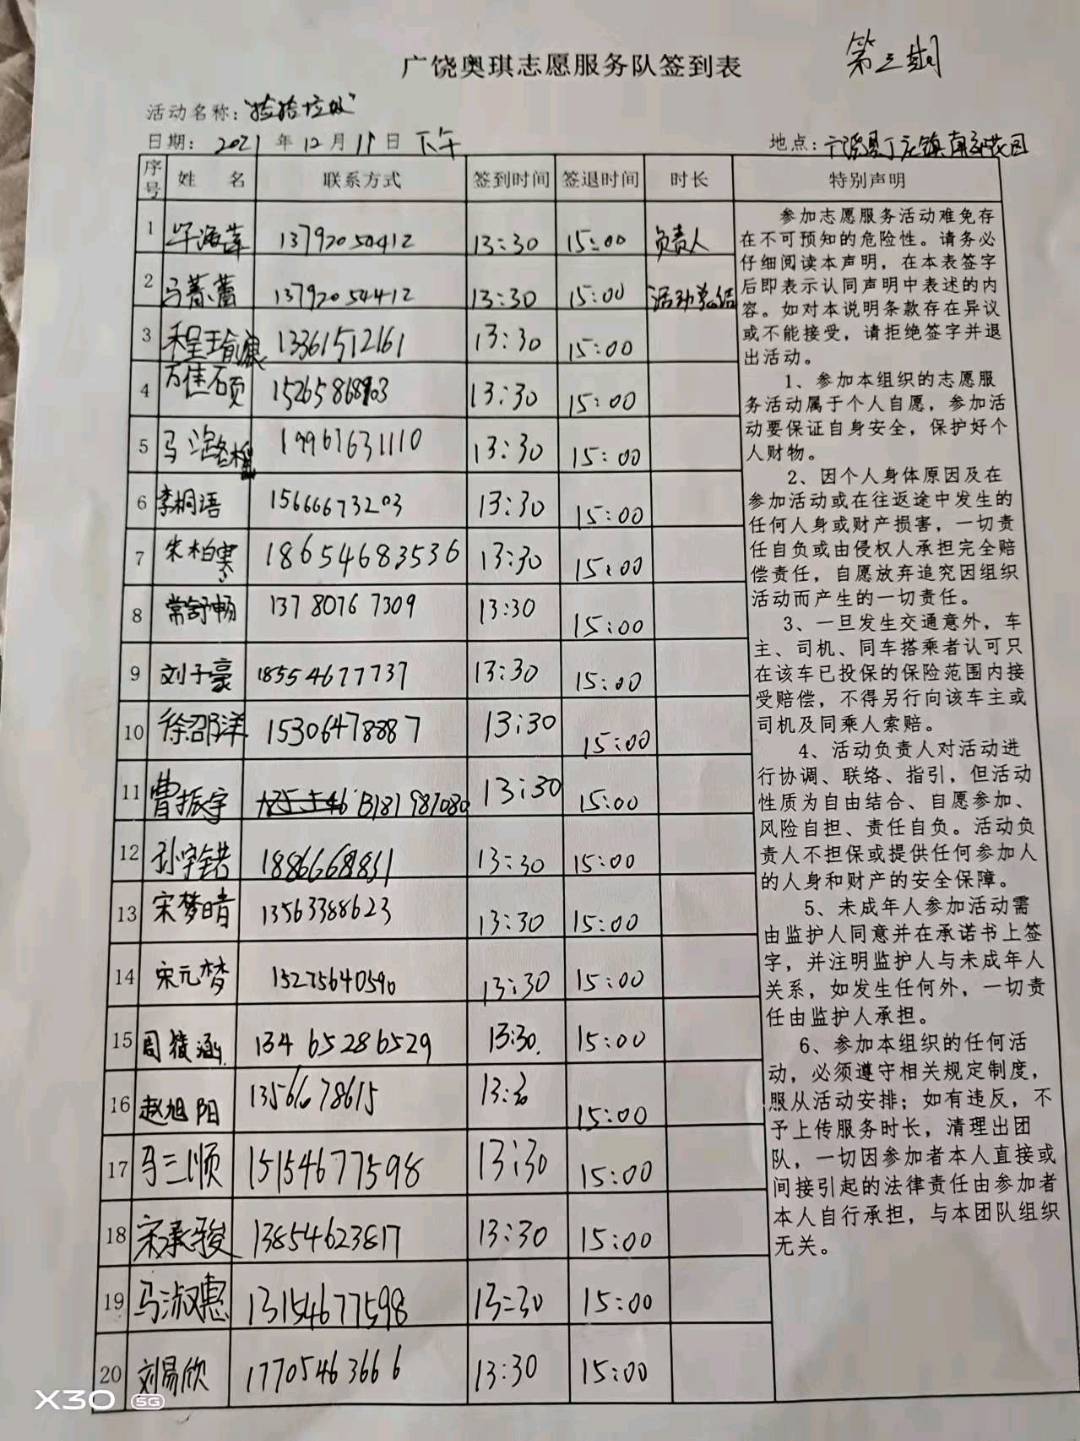 广饶奥琪志愿服务队签到表 第三期
活动名称:"捡拾垃圾"
日期: 2021年12月11日 下午 地点:广饶县丁庄镇
序号 姓名 联系方式 签到时间 签退时间 时长 特别声明
1 13792054412 13:30 15:00 负责人
2 马蕾蕾 13792054412 13:30 15:00 活动总结
3 程瑜康 13361512161 13:30 15:00
4 万佳硕 13:30 15:00
5 马 19967631110 13:30 15:00
6 李桐语 15666673203 13:30 15:00
7 朱柏寒 18654683536 13:30 15:00
8 常舒畅 13780767309 13:30 15:00
9 刘子豪 18554677737 13:30 15:00
10 徐邵洋 15306478887 13:30 15:00
11 曹振宇 13181987080 13:30 15:00
12 孙宇锘 13:30 15:00
13 宋梦晴 13563388623 13:30 15:00
14 宋元梦 15275640590 13:30 15:00
15 周筱涵 13465286529 13:30. 15:00
16 赵旭阳 13566678615 13:30 15:00
17 马三顺 15154677598 13:30 15:00
18 宋承骏 13854623817 13:30 15:00
19 马淑惠 13154677598 13:30 15:00
20 刘易欣 17705463666 13:30 15:00
参加志愿服务活动难免存
在不可预知的危险性。请务必
仔细阅读本声明，在本表签字
后即表示认同声明中表述的内
容。如对本说明条款存在异议
或不能接受，请拒绝签字并退
出活动。
1、参加本组织的志愿服
务活动属于个人自愿，参加活
动要保证自身安全，保护好个
人财物。
2、因个人身体原因及在
参加活动或在往返途中发生的
任何人身或财产损害，一切责
任自负或由侵权人承担完全赔
偿责任，自愿放弃追究因组织
活动而产生的一切责任。
3、一旦发生交通意外，车
主、司机、同车搭乘者认可只
在该车已投保的保险范围内接
受赔偿，不得另行向该车主或
司机及同乘人索赔。
4、活动负责人对活动进
行协调、联络、指引，但活动
性质为自由结合、自愿参加、
风险自担、责任自负。活动负
责人不担保或提供任何参加人
的人身和财产的安全保障。
5、未成年人参加活动需
由监护人同意并在承诺书上签
字，并注明监护人与未成年人
关系，如发生任何外，一切责
任由监护人承担。
6、参加本组织的任何活
动，必须遵守相关规定制度，
服从活动安排；如有违反，不
予上传服务时长，清理出团
队，一切因参加者本人直接或
间接引起的法律责任由参加者
本人自行承担，与本团队组织
无关。
X30 5G